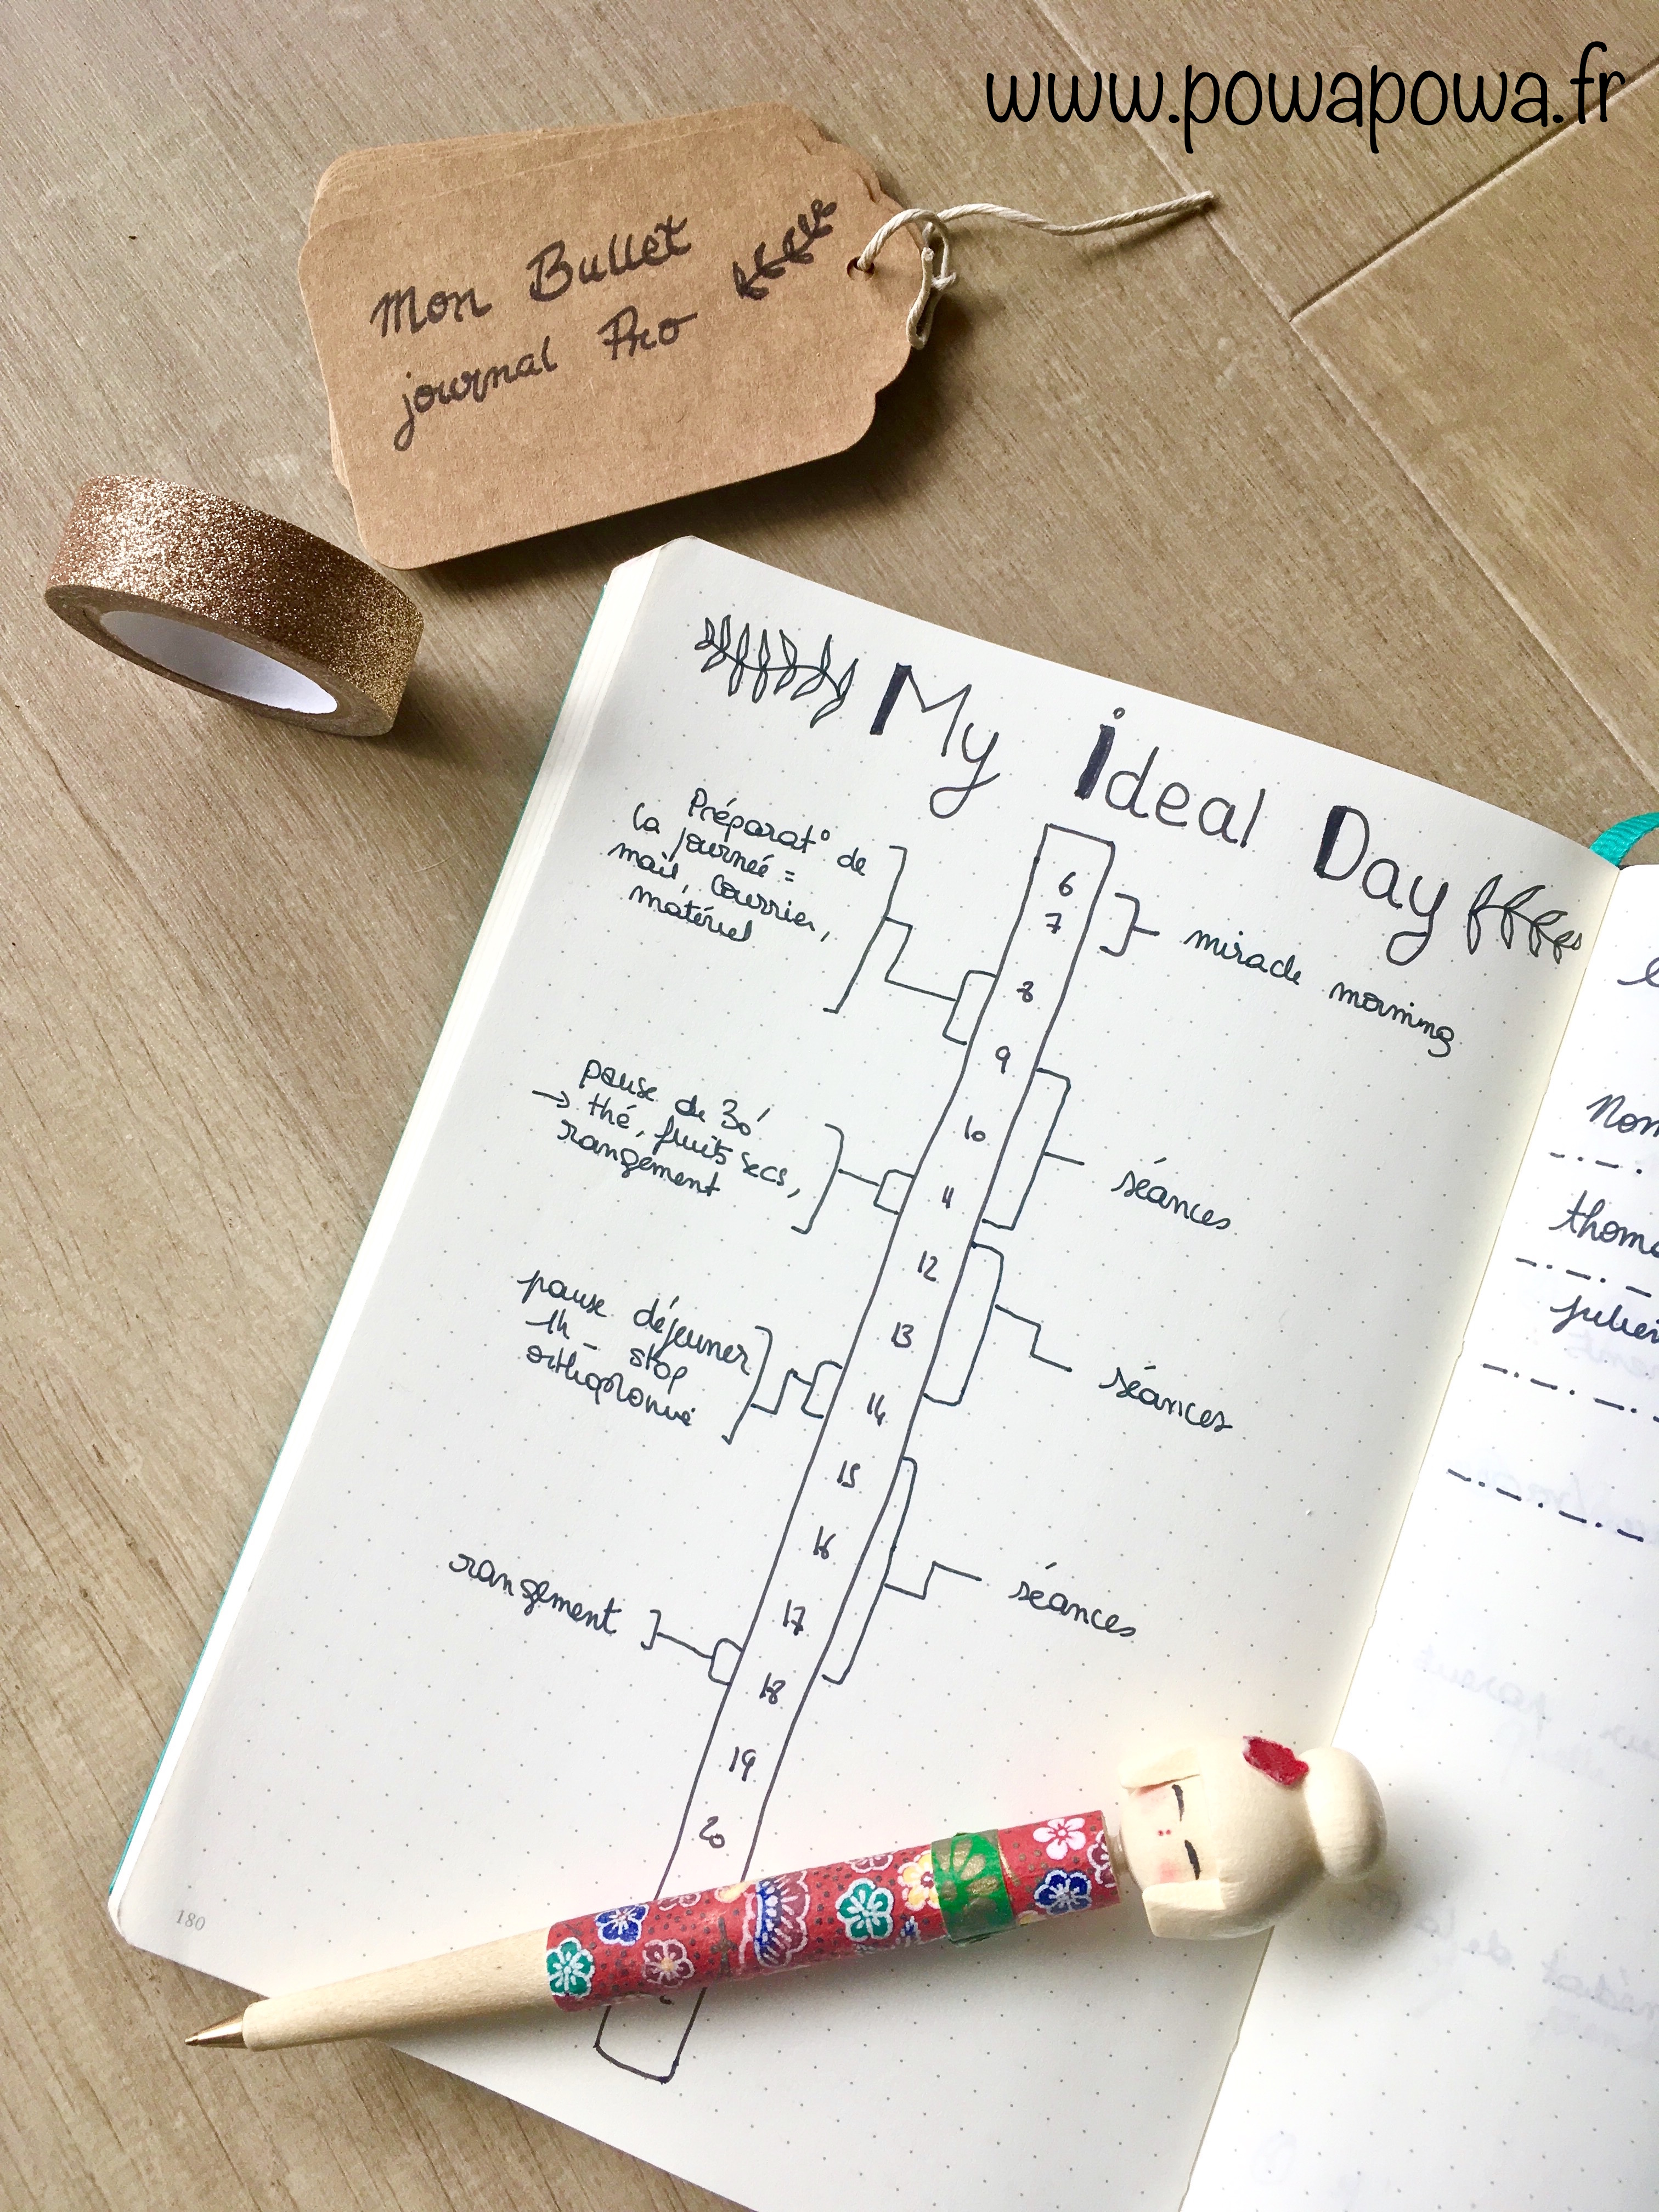 www.powapowa.fr
Mon Bullet
journal Pro
My ideal Day
Préparat° de
la journée =
mail, courrier,
matériel
6
7
miracle morning
8
9
pause de 30'
→ thé, fruits secs,
rangement
10
11
séances
12
13
pause déjeuner
1h - stop
14
séances
15
16
17
séances
rangement
18
19
20
180
Nom
thoma
julien